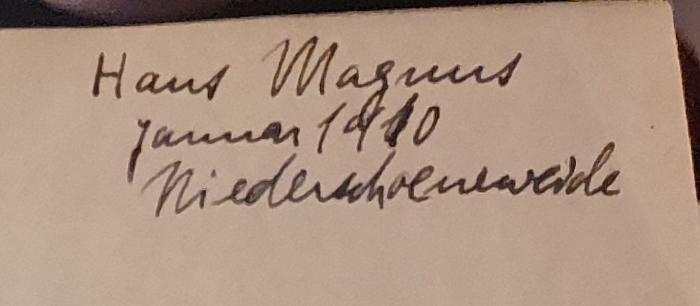 Hans Magnus
Januar 1910
Niederschoeneweide